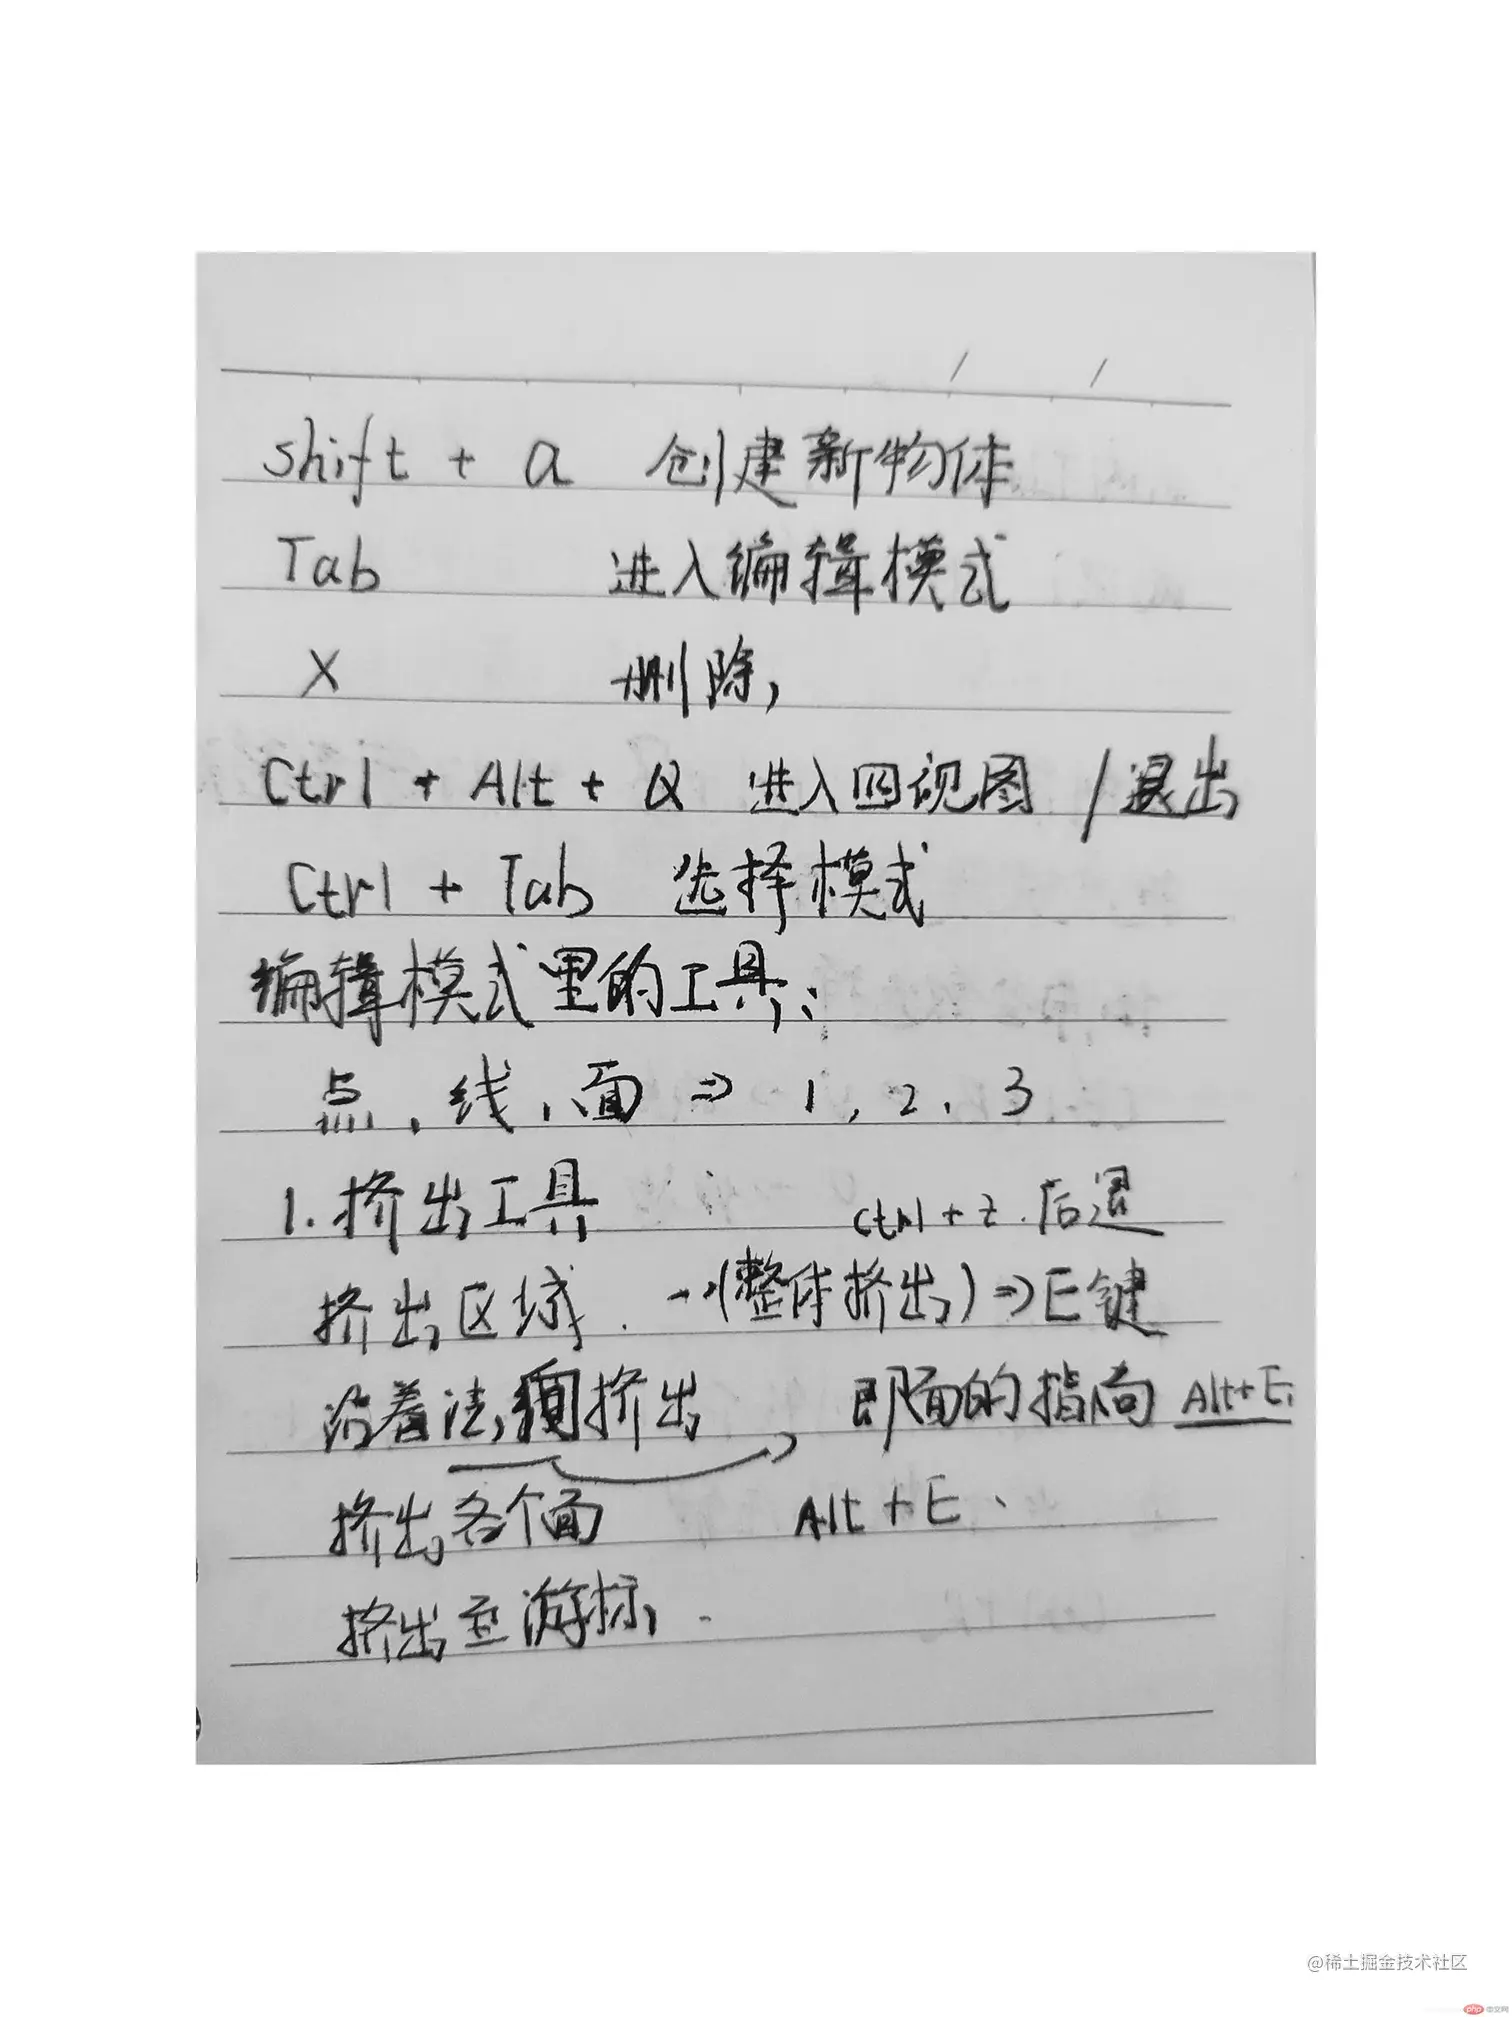 shift + a 创建新物体
Tab 进入编辑模式
X 删除,
Ctrl + Alt + Q 进入四视图 / 退出
Ctrl + Tab 选择模式
编辑模式里的工具:
点、线、面 => 1, 2、3
1. 挤出工具 ctrl + z. 后退
挤出区域. →(整体挤出) => E键
沿着法向挤出 即面的指向 Alt+E.
挤出各个面 Alt + E、
挤出至游标.
@稀土掘金技术社区
php 中文网